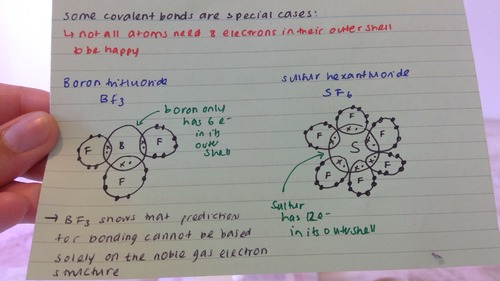 some covalent bonds are special cases:
↳ not all atoms need 8 electrons in their outer shell
to be happy
Boron trifluoride
Bf3
boron only
has 6 e-
in its
outer
shell
F B F
F
sulfur hexafluoride
SF6
F
F F
S
F F
F
sulfur
has 12e-
in its outershell
→ BF3 shows that prediction
for bonding cannot be based
solely on the noble gas electron
structure